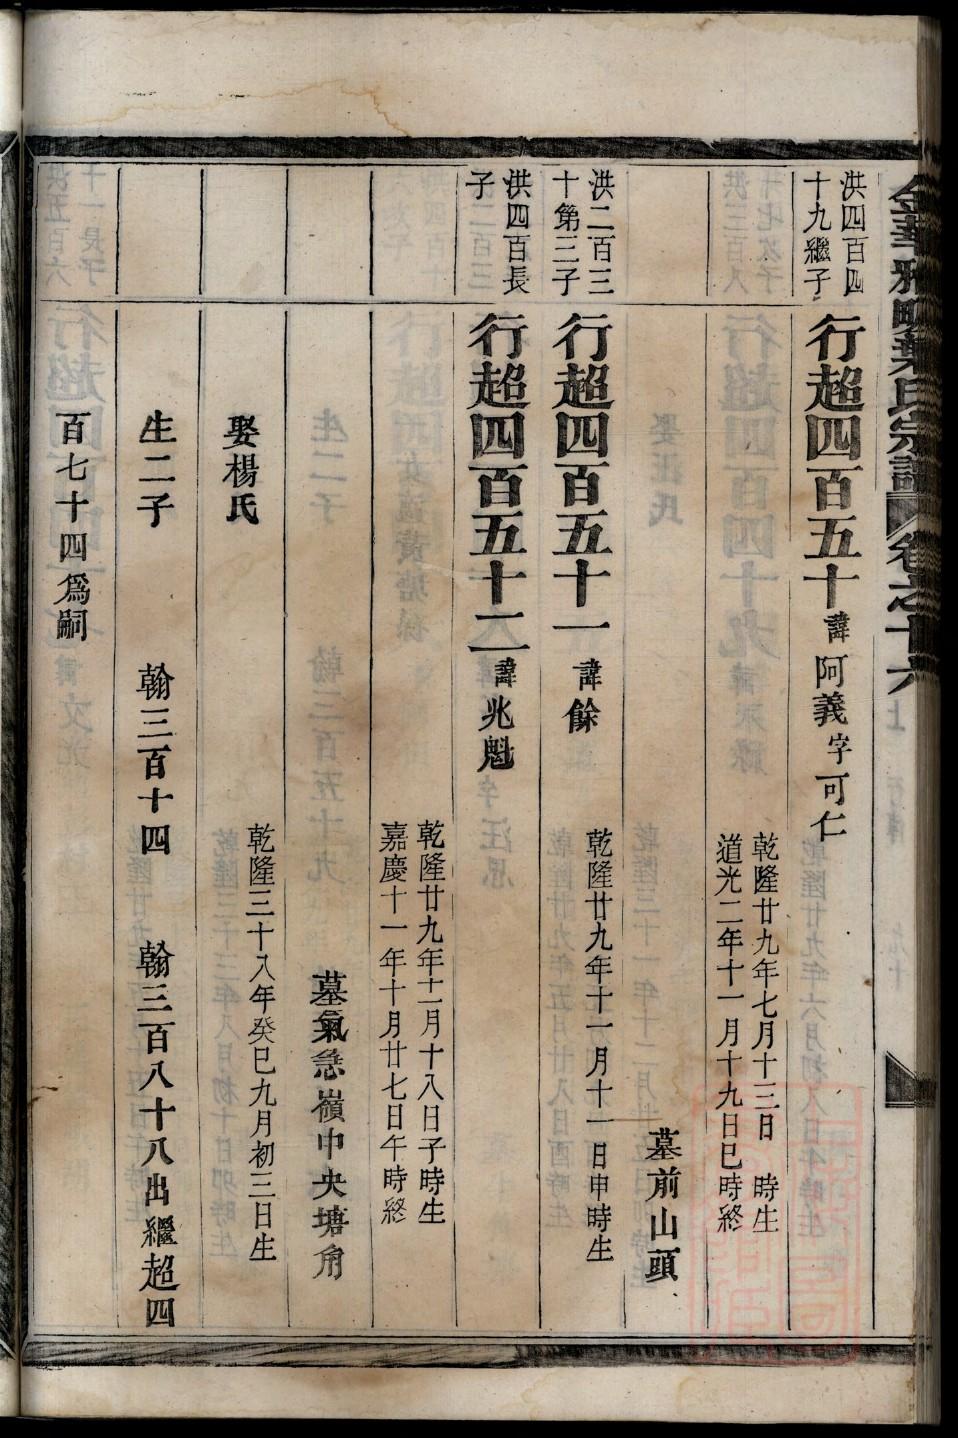 金華雅畈葉氏宗譜 卷之十六上
洪四百四
十九繼子
行超四百五十 諱阿義字可仁
乾隆廿九年七月十三日 時生
道光二年十一月十九日巳時終
墓前山頭
洪二百三
十第三子
行超四百五十一 諱餘
乾隆廿九年十一月十一日申時生
洪四百長
子
行超四百五十二 諱兆魁
乾隆廿九年十二月十八日子時生
嘉慶十一年十月廿七日午時終
墓氣急嶺中央塘角
娶楊氏
乾隆三十八年癸巳九月初三日生
生二子 翰三百十四 翰三百八十八出繼超四
百七十四爲嗣